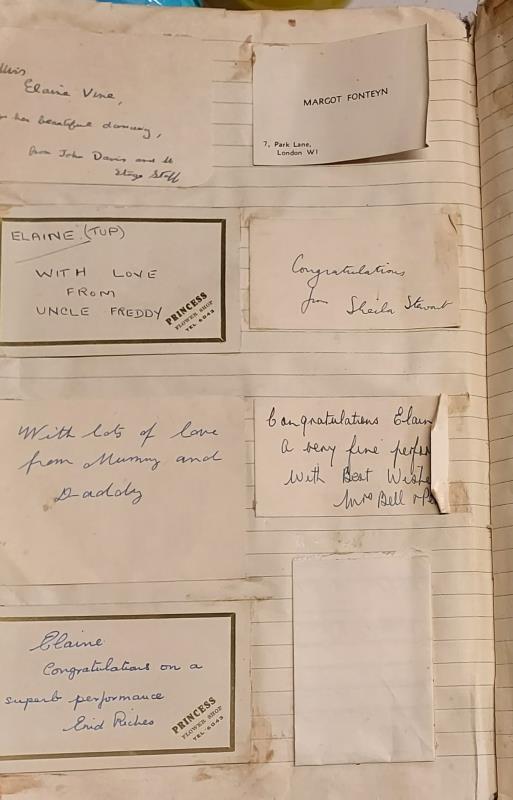 Miss
Elaine Vine,
her beautiful dancing,
from John Davis and
Stage Staff
MARGOT FONTEYN
7, Park Lane,
London W1
ELAINE (TUP)
WITH LOVE
FROM
UNCLE FREDDY
PRINCESS
FLOWER SHOP
TEL 6043
Congratulations
from Sheila Stewart
With lots of love
from Mummy and
Daddy
Congratulations Elain
a very fine perfor
With Best Wishe
Mrs Bell
Elaine
Congratulations on a
superb performance
Enid Riches
PRINCESS
FLOWER SHOP
TEL 6043